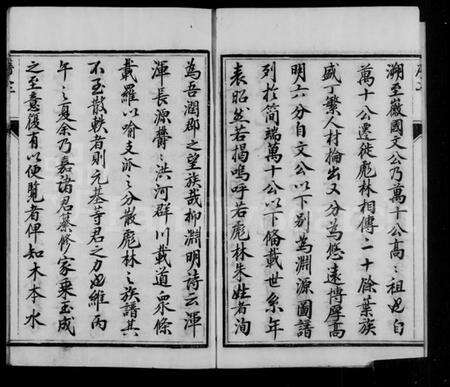 溯至徽國文公乃萬十公高〻祖也自
萬十公遷徙彪林相傳二十餘葉族
盛丁繁人材掄出又分為悠遠博厚高
明六分自文公以下别為淵源圖譜
列於简端萬十公以下偹載世系年
表昭然若揭嗚呼若彪林朱姓者洵
為吾潤郡之望族哉抑淵明詩云渾
渾長源欝〻洪河群川載道衆條
載羅以喻支派之分散彪林之族譜其
不至散軼者則元基等君之力也維丙
午之夏余乃嘉諸君纂修家乘玉成
之至意復有以使覧者俾知木本水